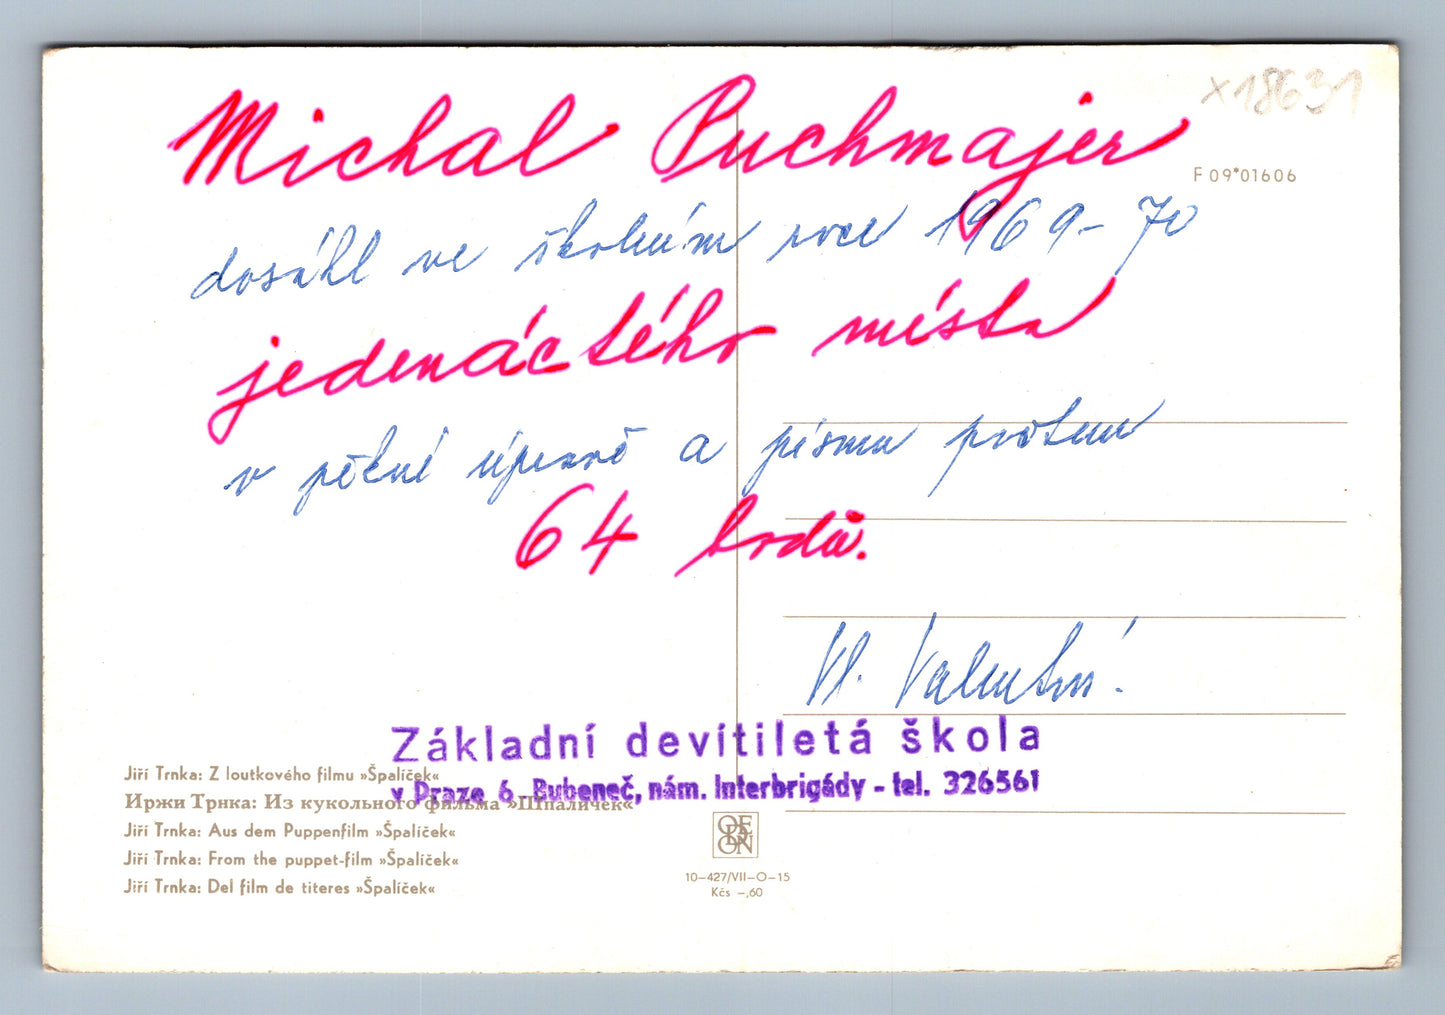 x18631
Michal Puchmajer
F 09*01606
dosáhl ve školním roce 1969-70
jedenáctého místa
v pěkné úpravě a písmu počtem
64 bodů.
Vl. Valentová.
Základní devítiletá škola
v Praze 6 - Bubeneč, nám. Interbrigády - tel. 326561
Jiří Trnka: Z loutkového filmu »Špalíček«
Иржи Трнка: Из кукольного фильма »Шпаличек«
Jiří Trnka: Aus dem Puppenfilm »Špalíček«
Jiří Trnka: From the puppet-film »Špalíček«
Jiří Trnka: Del film de titeres »Špalíček«
ORBN
10—427/VII—O—15
Kčs —,60